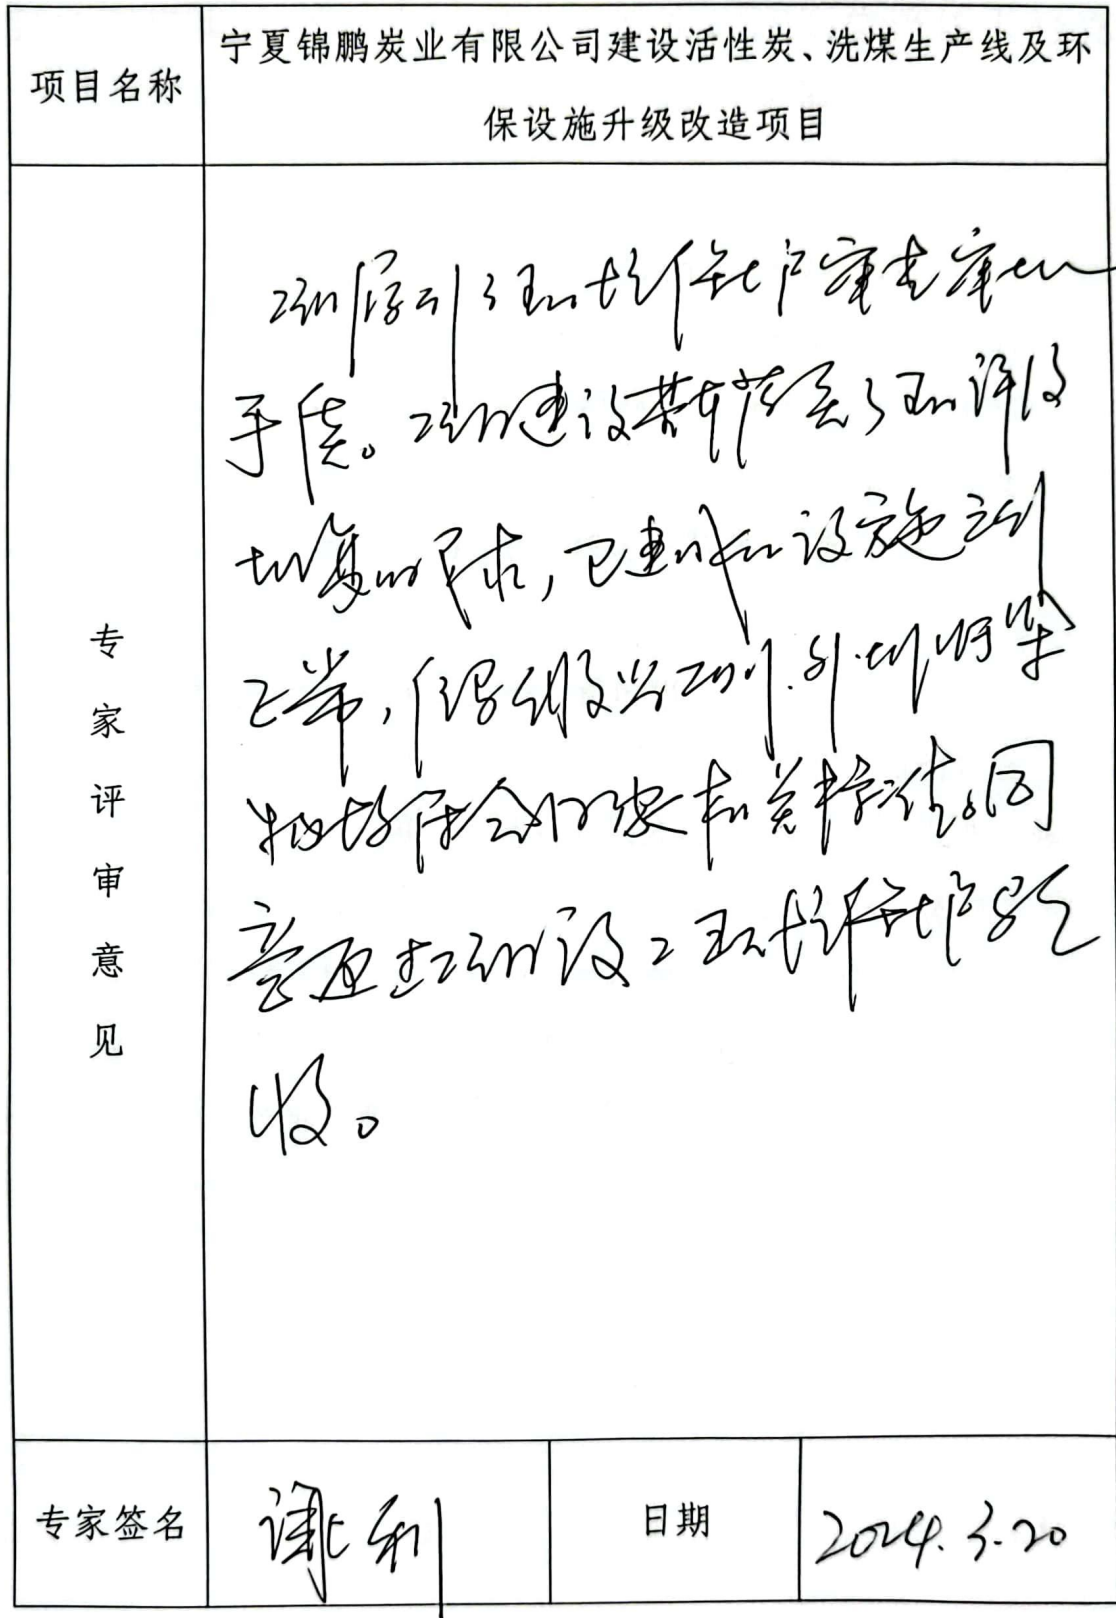 项目名称
宁夏锦鹏炭业有限公司建设活性炭、洗煤生产线及环
保设施升级改造项目
专家评审意见
项目履行了环境保护审查审批
手续。项目建设基本落实了环评及
批复的要求,已建成的设施运行
正常,监测期间,外排污染
物均符合国家相关标准。同
意通过项目竣工环境保护验
收。
专家签名
日期
2024.3.20